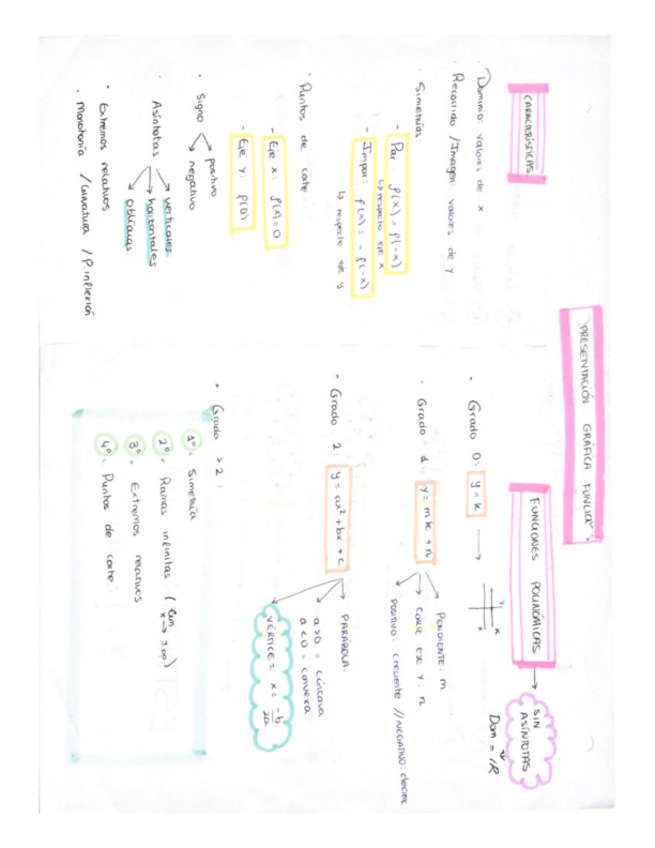 REPRESENTACIÓN GRÁFICA FUNCION
CARACTERÍSTICAS
· Dominio: valores de x
· Recorrido / Imagen: valores de y
· Simetrías:
- Par: f(x) = f(-x)
↳ respecto eje x
- Impar: f(x) = -f(-x)
↳ respecto eje y
· Puntos de corte
- Eje x: f(x) = 0
- Eje y: f(0)
· Signo
positivo
negativo
· Asíntotas
verticales
horizontales
oblicuas
· Extremos relativos
· Monotonía / Curvatura / P. inflexión
FUNCIONES POLINÓMICAS → SIN ASÍNTOTAS
Dom = ℝ
· Grado 0: y = k →
y
k
x
· Grado 1: y = mx + n
PENDIENTE: m
CORTE EJE Y: n
POSITIVO: creciente // NEGATIVO: decrec.
· Grado 2: y = ax² + bx + c
PARÁBOLA
a > 0 = cóncava
a < 0 = convexa
VÉRTICE = x = -b/2a
· Grado > 2:
1º. Simetría
2º. Ramas infinitas (lim x→±∞)
3º. Extremos relativos
4º. Puntos de corte